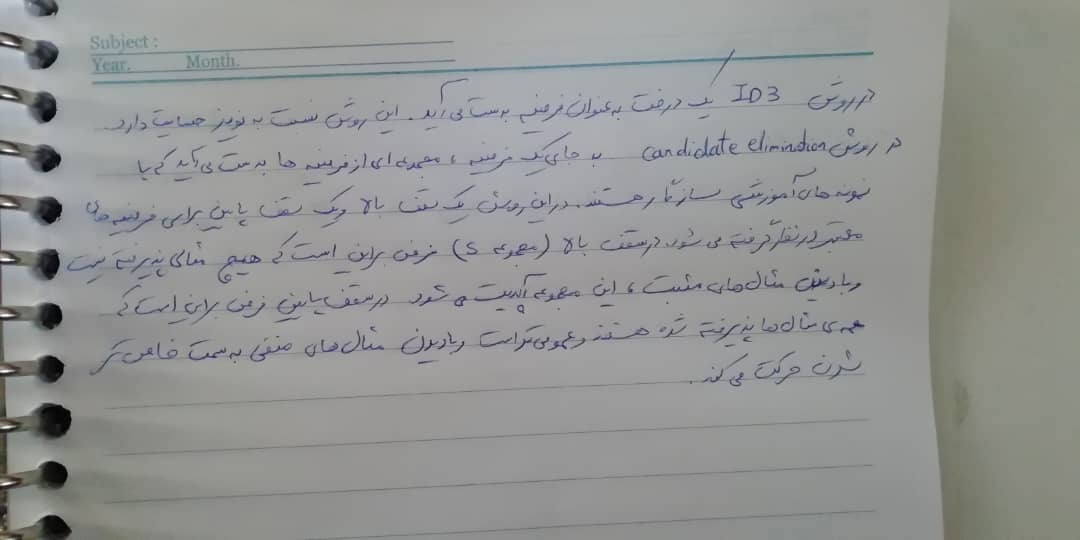 Subject :
Year. Month.
در روش ID3 یک درخت به عنوان فرضیه بدست می آید. این روش نسبت به نویز حساسیت دارد.
در روش candidate elimination به جای یک فرضیه ، مجموعه ای از فرضیه ها بدست می آید که با
نمونه های آموزشی سازگار هستند. در این روش یک سقف بالا و یک سقف پایین برای فرضیه های
معتبر در نظر گرفته می شود. در سقف بالا (مجموعه S) فرض براین است که هیچ مثالی پذیرفته نیست
و با دیدن مثال های مثبت ، این مجموعه آپدیت می شود در سقف پایین فرض براین است که
همه ی مثال ها پذیرفته شده هستند و عمومی تر است و با دیدن مثال های منفی به سمت خاص تر
شدن حرکت می کند.